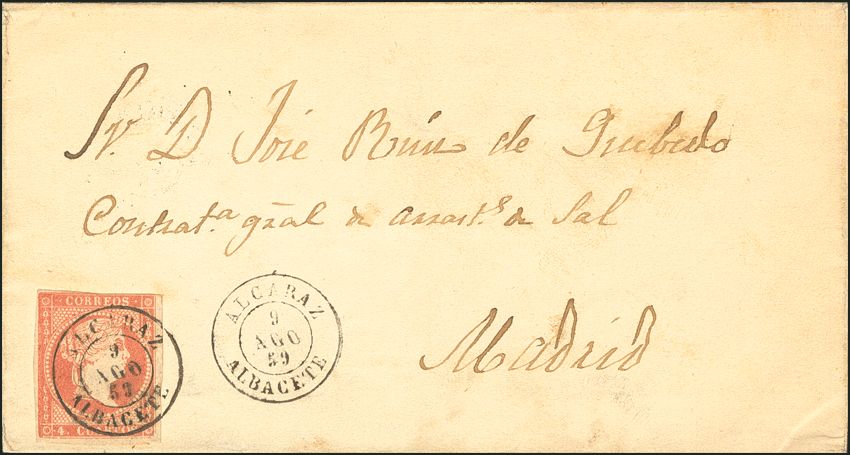 Sr. D José Ruiz de Quebedo
Contrat.a gral de arrast.s de Sal
Madrid
ALCARAZ
9
AGO
59
ALBACETE
CORREOS
ALCARAZ
9
AGO
59
ALBACETE
4. CUARTOS